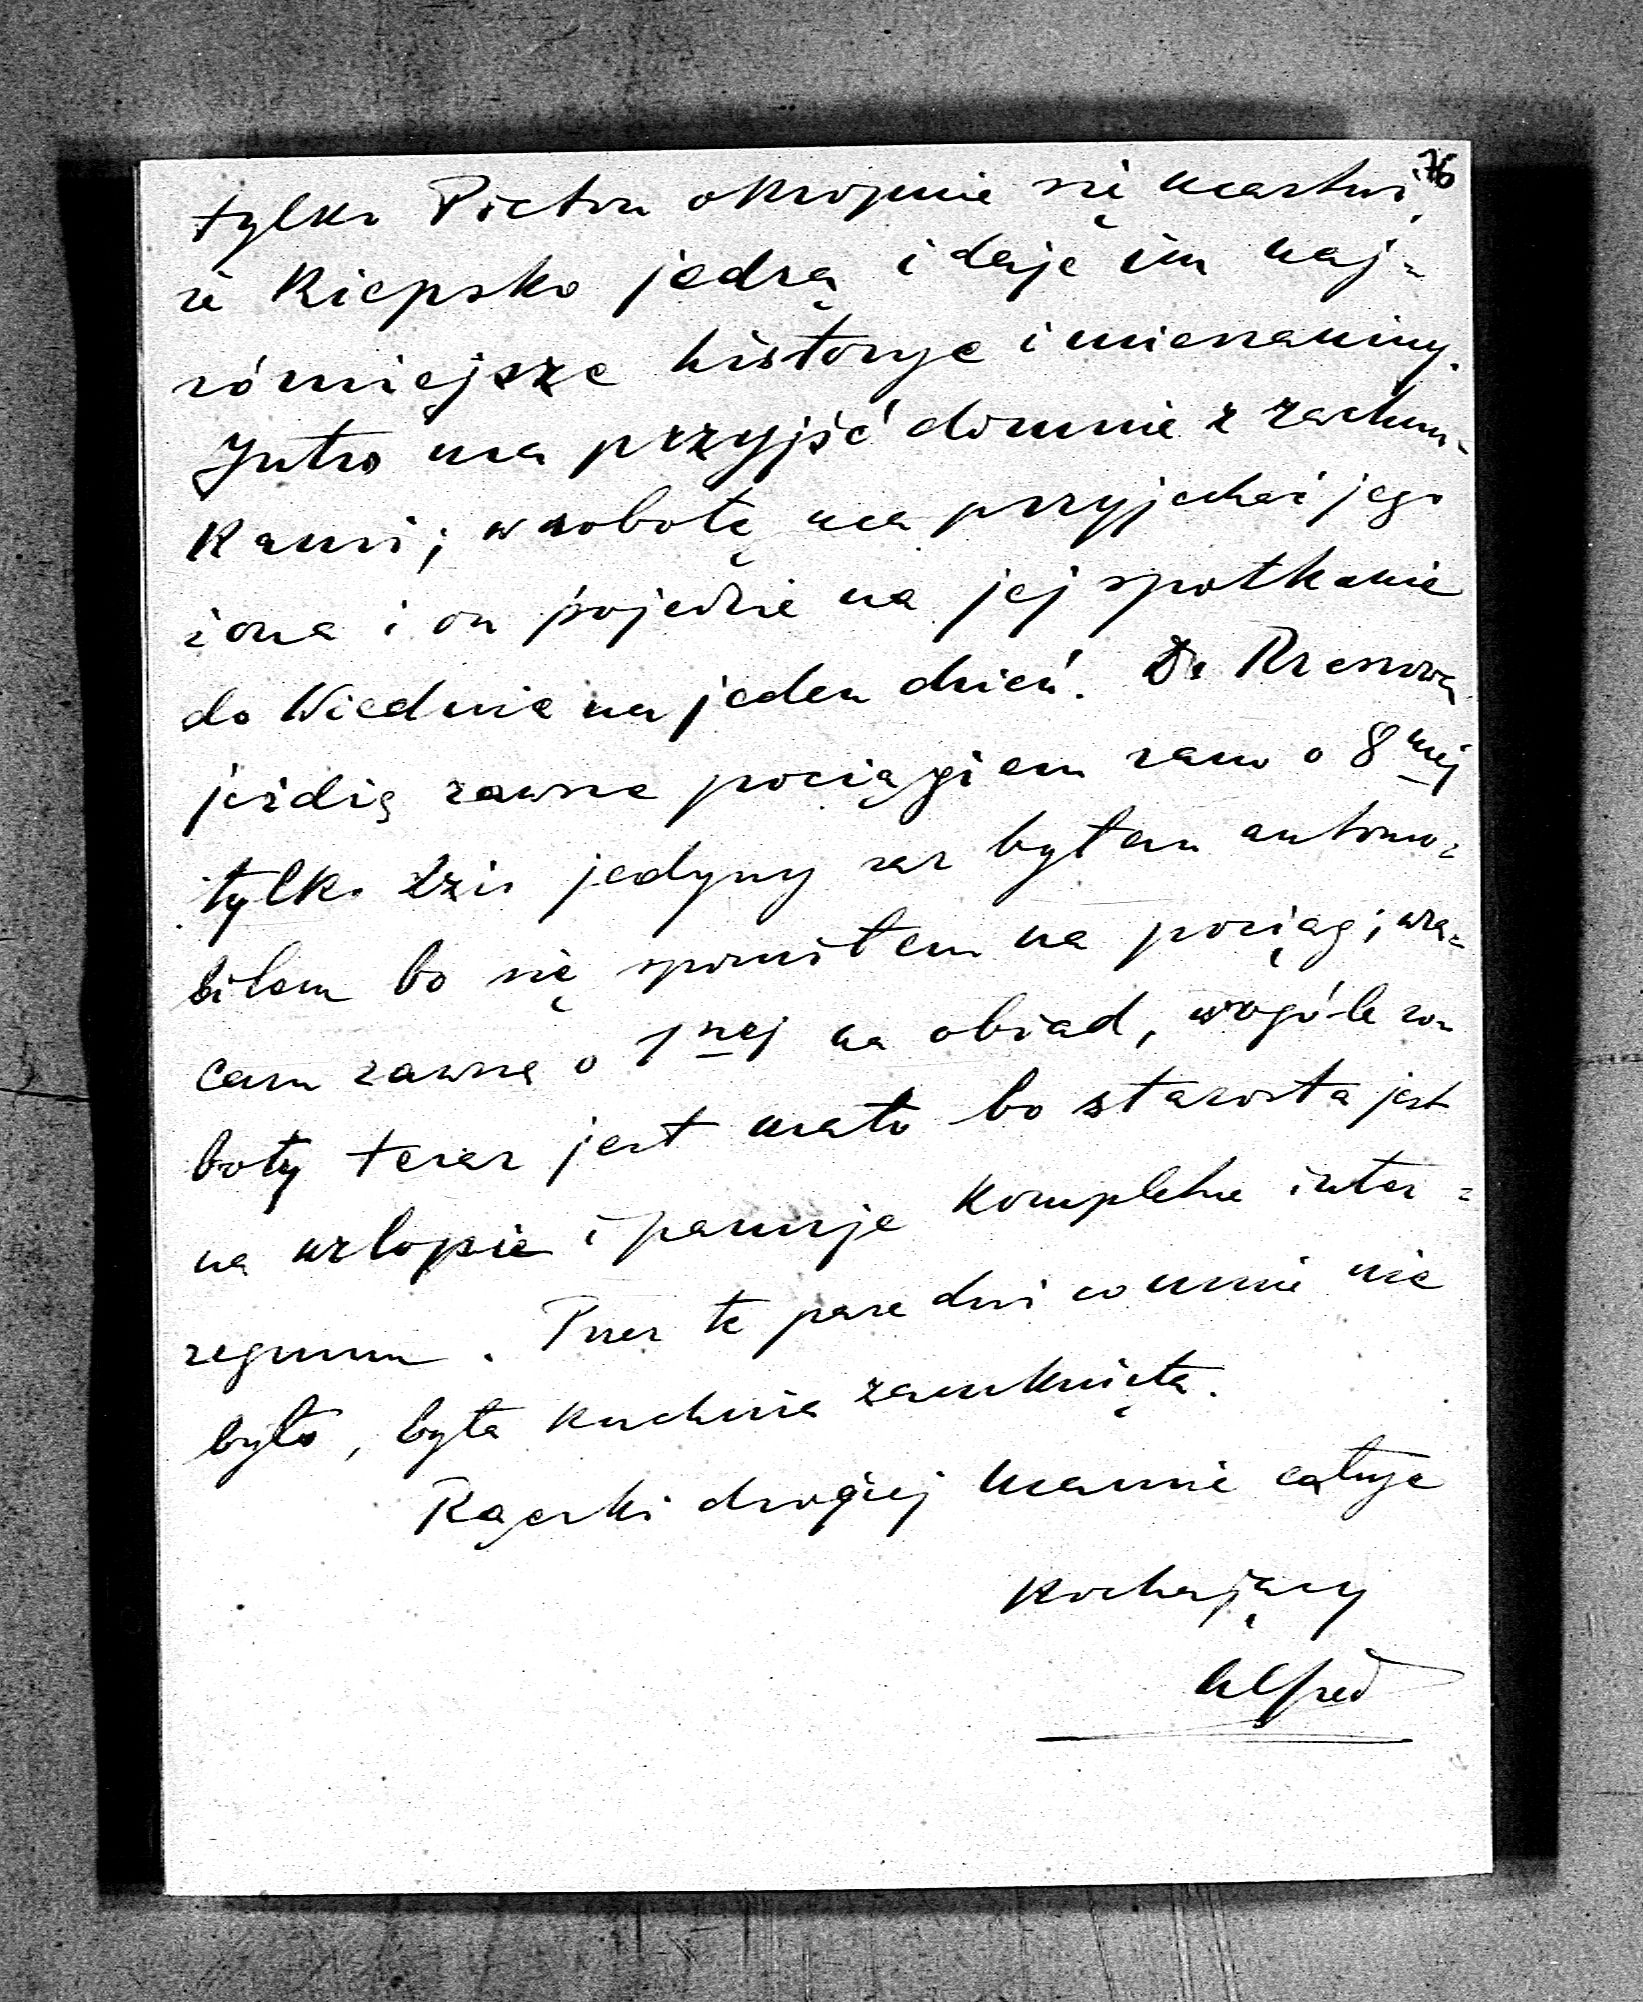 76
tylko Piotra okropnie się martwi,
że kiepsko jedzą i daje im naj-
różniejsze historye i mieszaniny.
Jutro ma przyjść do mnie z rachun-
kami; w sobotę ma przyjechać jego
żona i on pojedzie na jej spotkanie
do Wiednia na jeden dzień. Do Rzeszowa
jeżdżę zawsze pociągiem rano o 8mej
tylko dziś jedyny raz byłem automo-
bilem bo się spóźniłem na pociąg; wra-
cam zawsze o 1nej na obiad, wogóle ro-
boty teraz jest mało bo starosta jest
na urlopie i panuje kompletne inter-
regnum. Przez te parę dni co mnie nie
było, była kuchnia zamknięta.
Rączki drogiej Mamie całuję
kochający
Alfred